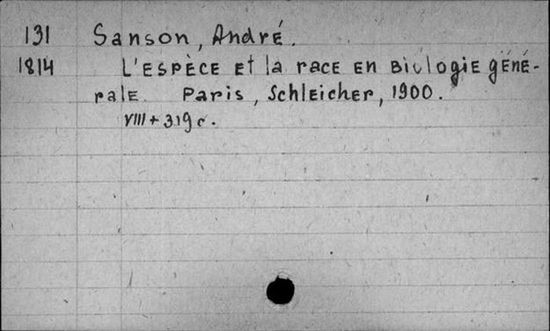 131 Sanson, André.
1814 L'espèce et la race en biologie géné-
rale. Paris, Schleicher, 1900.
VIII + 319 c.